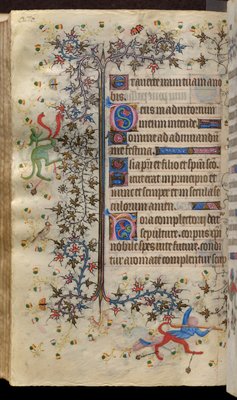 Et averte iram tuam a no
bis.
Deus in adiutorium
meum intende
Domine ad adiuvandū
me festina.
Glia pri et filio et spui sco
Sicut erat in principio et
nunc et semper et in secula se
culorum amen.
Hora completorij datʳ
sepulture. corpus xpi
nobile spes vite future. condi
tur aromate complentur scrip